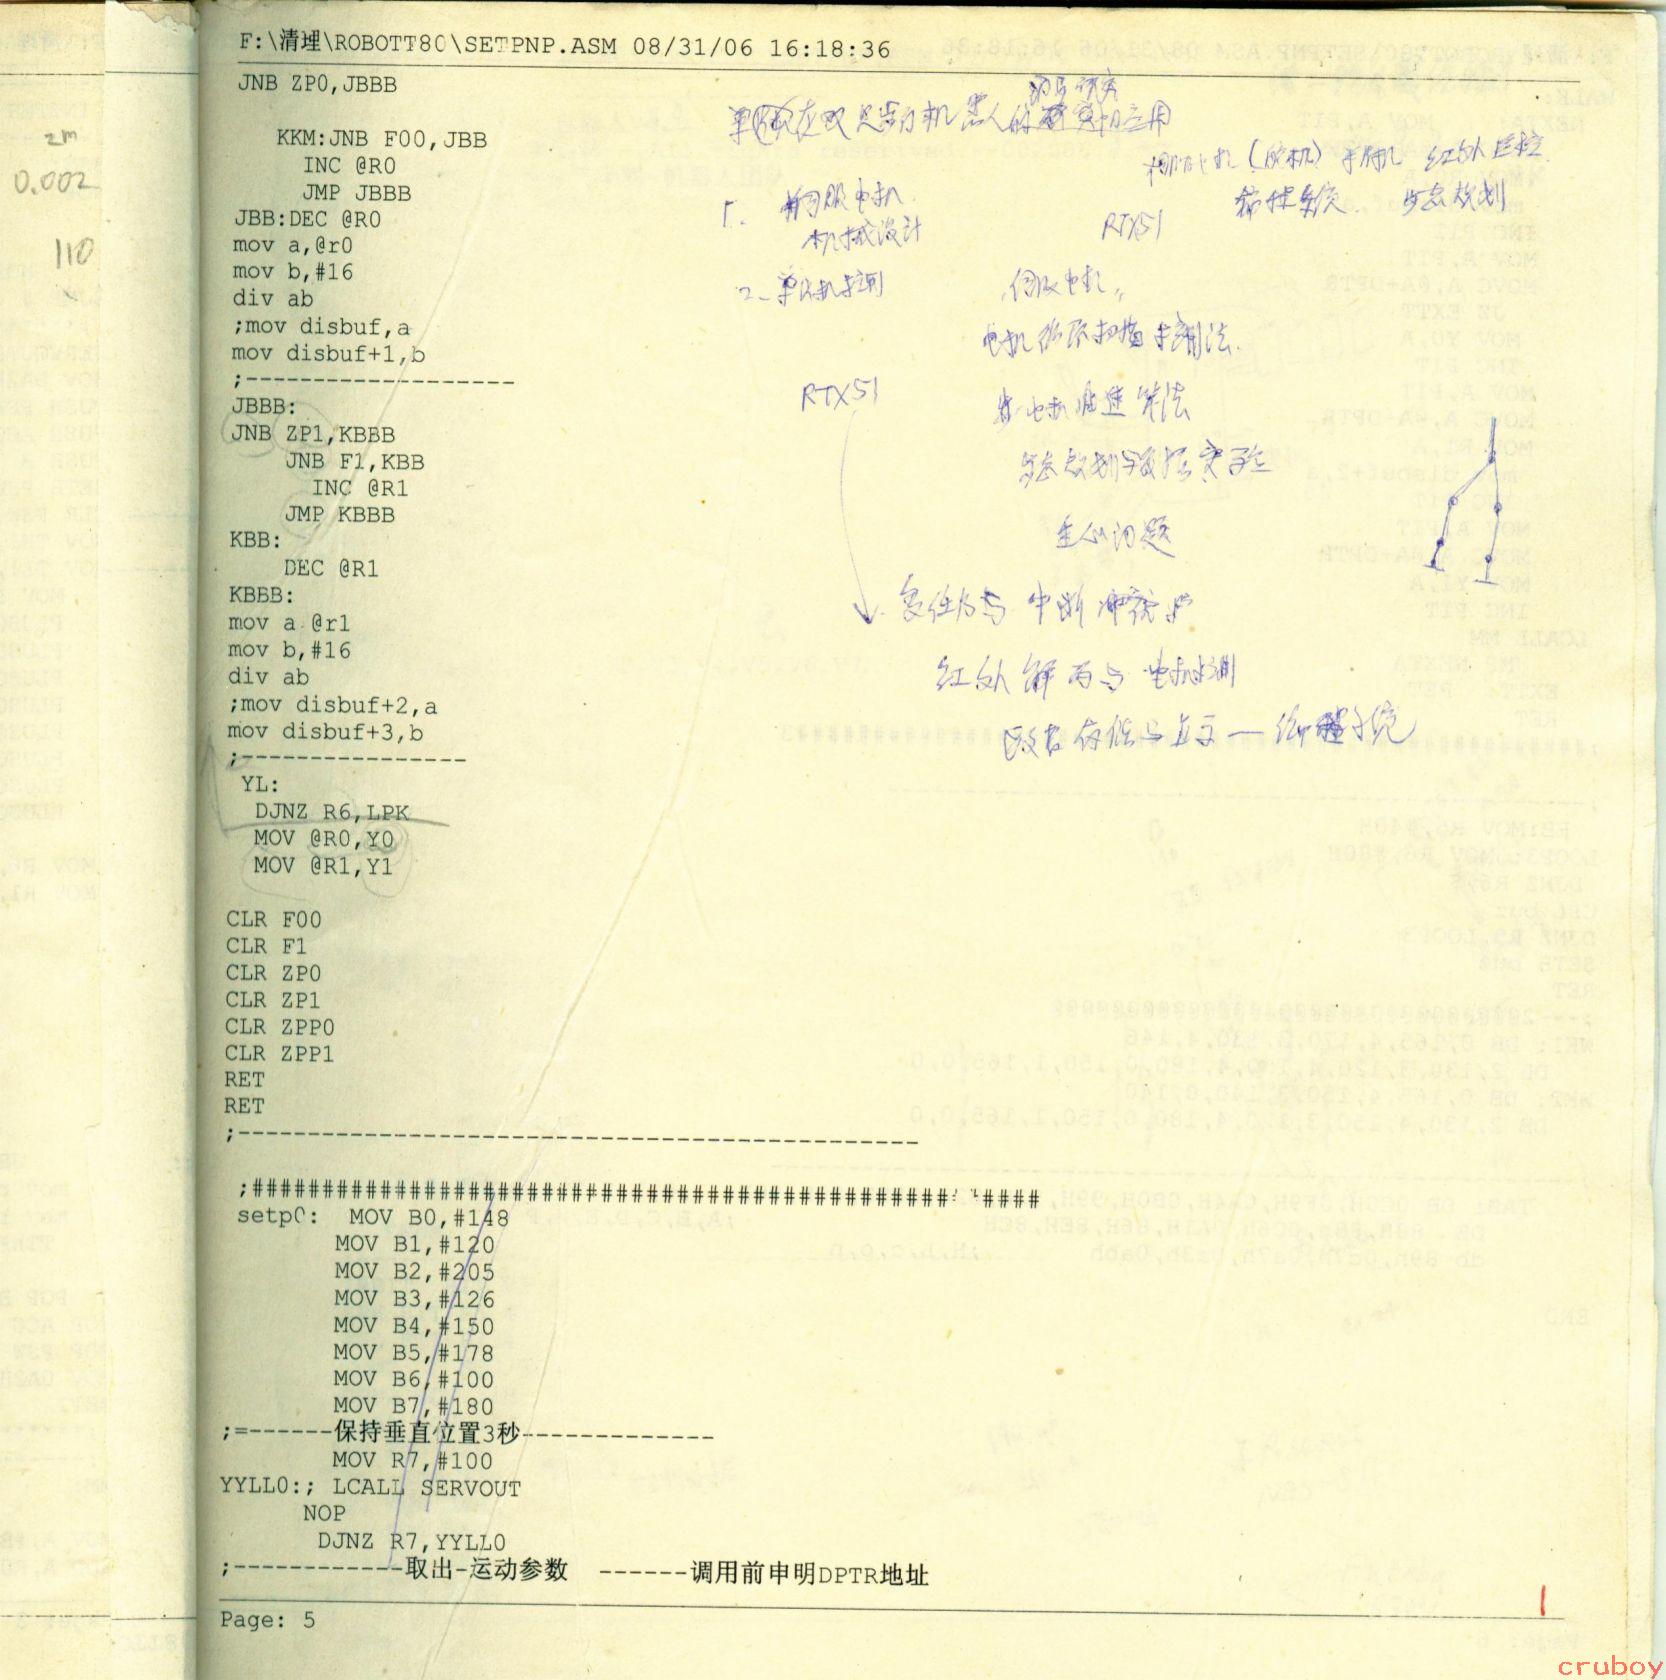 F:\清理\ROBOTT80\SETPNP.ASM 08/31/06 16:18:36
JNB ZP0,JBBB
KKM:JNB F00,JBB
INC @R0
JMP JBBB
JBB:DEC @R0
mov a,@r0
mov b,#16
div ab
;mov disbuf,a
mov disbuf+1,b
;--------------------
JBBB:
JNB ZP1,KBBB
JNB F1,KBB
INC @R1
JMP KBBB
KBB:
DEC @R1
KBBB:
mov a @r1
mov b,#16
div ab
;mov disbuf+2,a
mov disbuf+3,b
;-----------------
YL:
DJNZ R6,LPK
MOV @R0,Y0
MOV @R1,Y1
CLR F00
CLR F1
CLR ZP0
CLR ZP1
CLR ZPP0
CLR ZPP1
RET
RET
;-------------------------------------------------
;######################################################
setp0: MOV B0,#148
MOV B1,#120
MOV B2,#205
MOV B3,#126
MOV B4,#150
MOV B5,#178
MOV B6,#100
MOV B7,#180
;=------保持垂直位置3秒--------------
MOV R7,#100
YYLL0:; LCALL SERVOUT
NOP
DJNZ R7,YYLL0
;------------取出-运动参数 ------调用前申明DPTR地址
Page: 5
2m
0.002
110
在双足步行机器人的应用
(舵机) 手柄 红外
系统 步态规划
1. 伺服电机
机械设计
RTX51
2. 单片机控制
伺服电机
电机 扫描 法
RTX51
算法
步态规划与 实验
重心问题
多任务与中断冲突
红外解码与
存储与 系统
cruboy